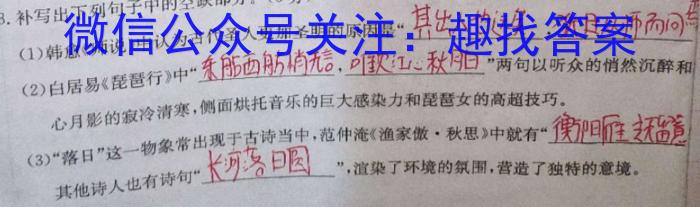 3.补写出下列句子中的空缺部分。
微信公众号关注：趣找答案
(1)韩愈《师说》中认为古代圣人更加圣明的原因是“其出人
(2)白居易《琵琶行》中“东船西舫悄无言,唯见江心秋月白”两句以听众的悄然沉醉和
心月影的寂冷清寒,侧面烘托音乐的巨大感染力和琵琶女的高超技巧。
(3)“落日”这一物象常出现于古诗当中,范仲淹《渔家傲·秋思》中就有“衡阳雁去无留意
其他诗人也有诗句“长河落日圆”,渲染了环境的氛围,营造了独特的意境。